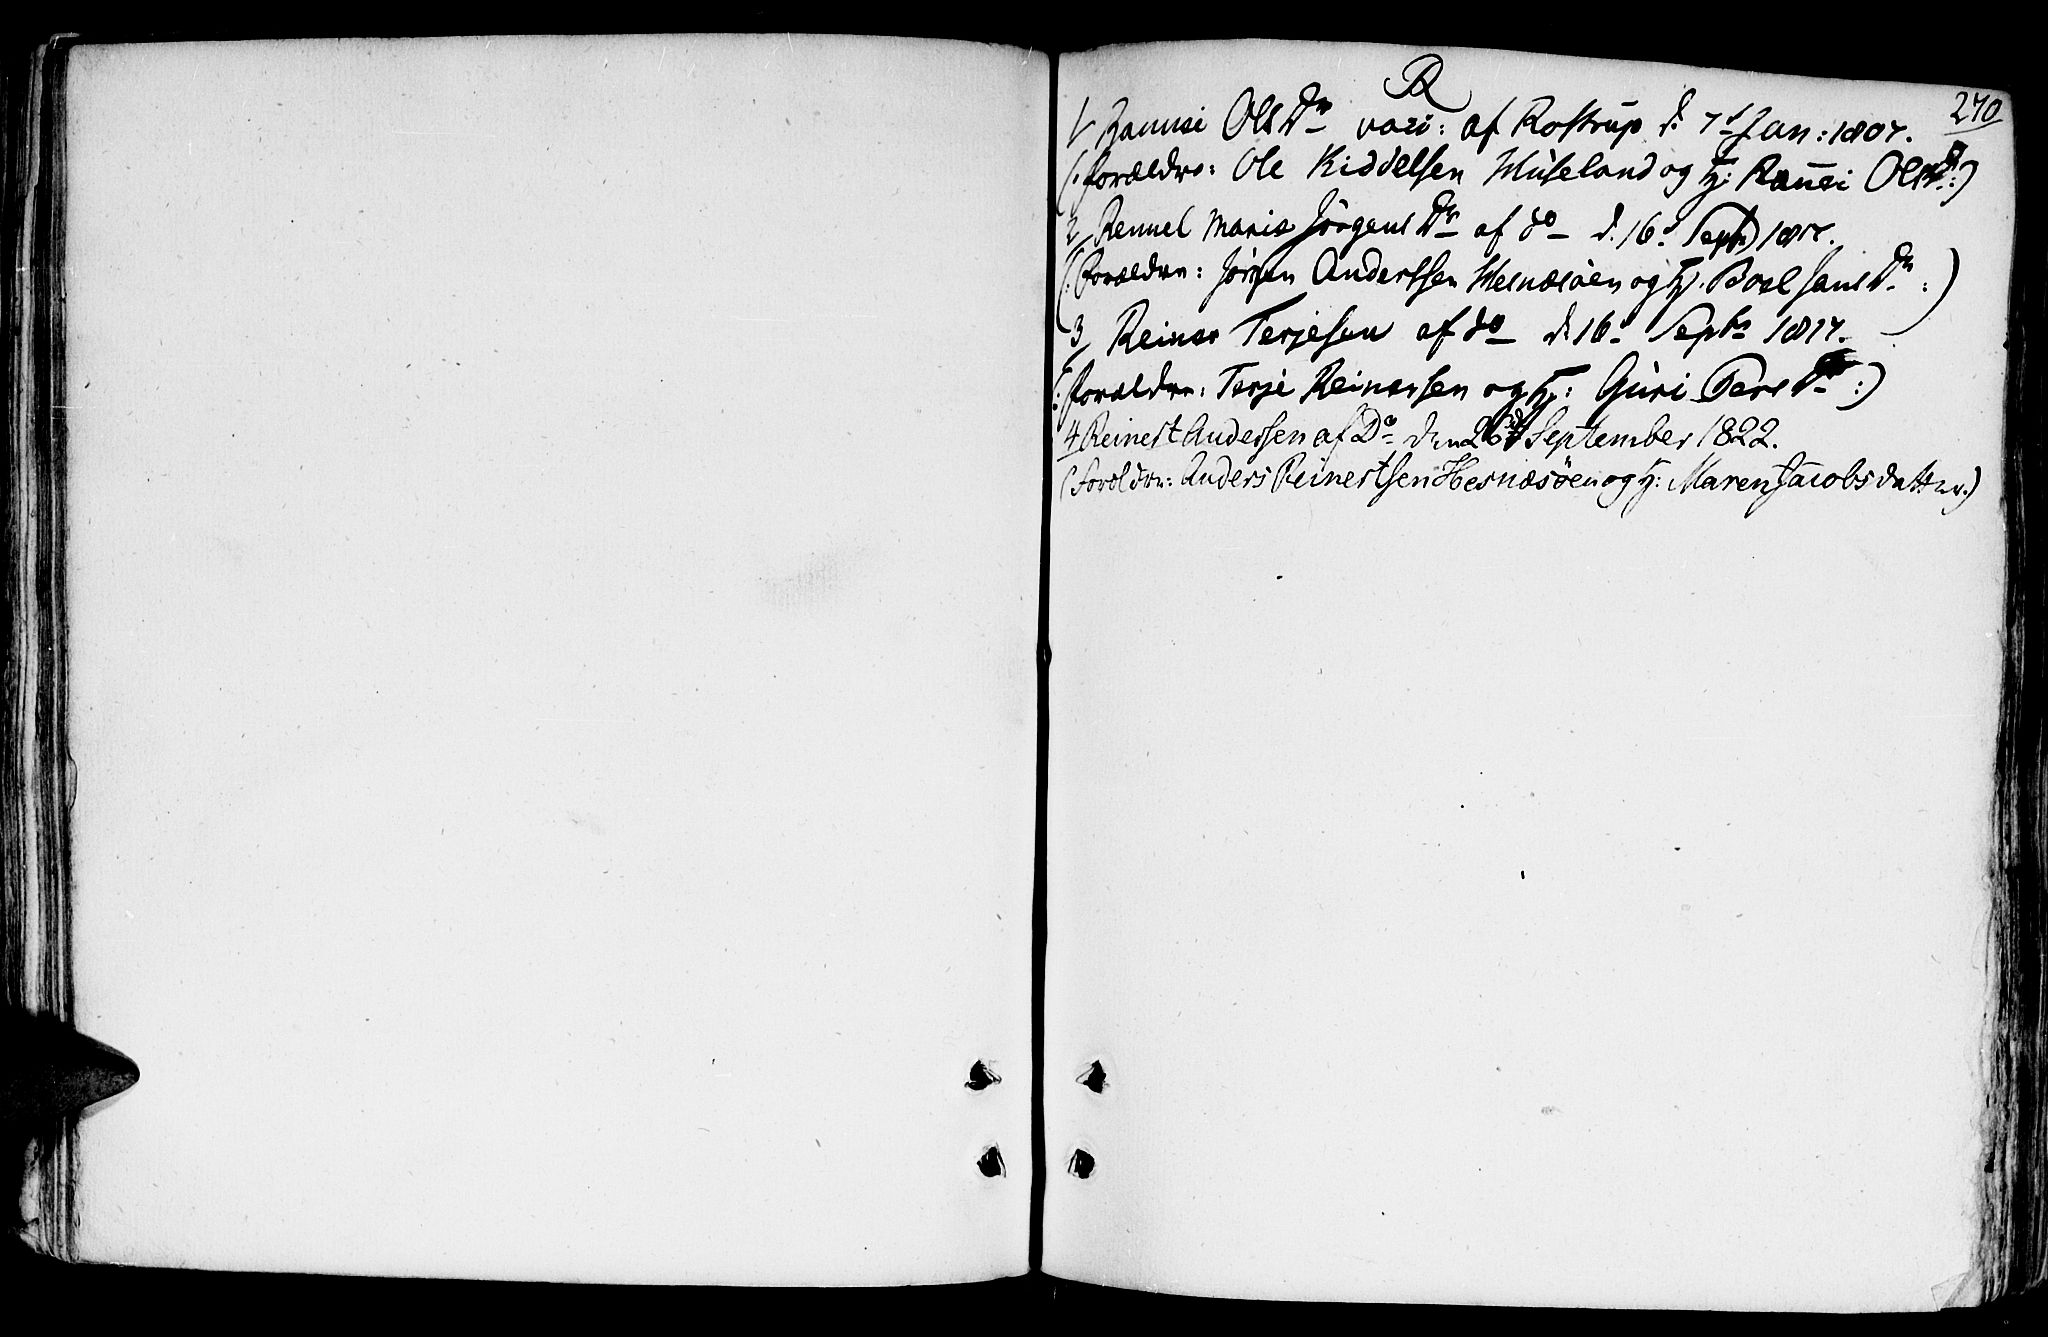 R
270
1/ Rannei Ols Dr vaci: af Rostrup d. 7d Jan: 1807.
(: Forældre: Ole Kiddelsen Museland og H: Rannei Ols Dr :)
2/ Rennel Maria Jörgens Dr af do d. 16d Septb 1817.
(: Forældre: Jörgen Anderssen Hesnæsöen og H: Boel Jans Dr :)
3/ Reiner Terjesen af do d. 16d Septbr 1817.
(: Forældre: Terje Reinersen og H: Guri Pers Dr :)
4 Reinert Andersen af Do den 26d September 1822.
(Foreldre: Anders Reinertsen Hesnæsöen og H: Maren Jacobsdatter.)